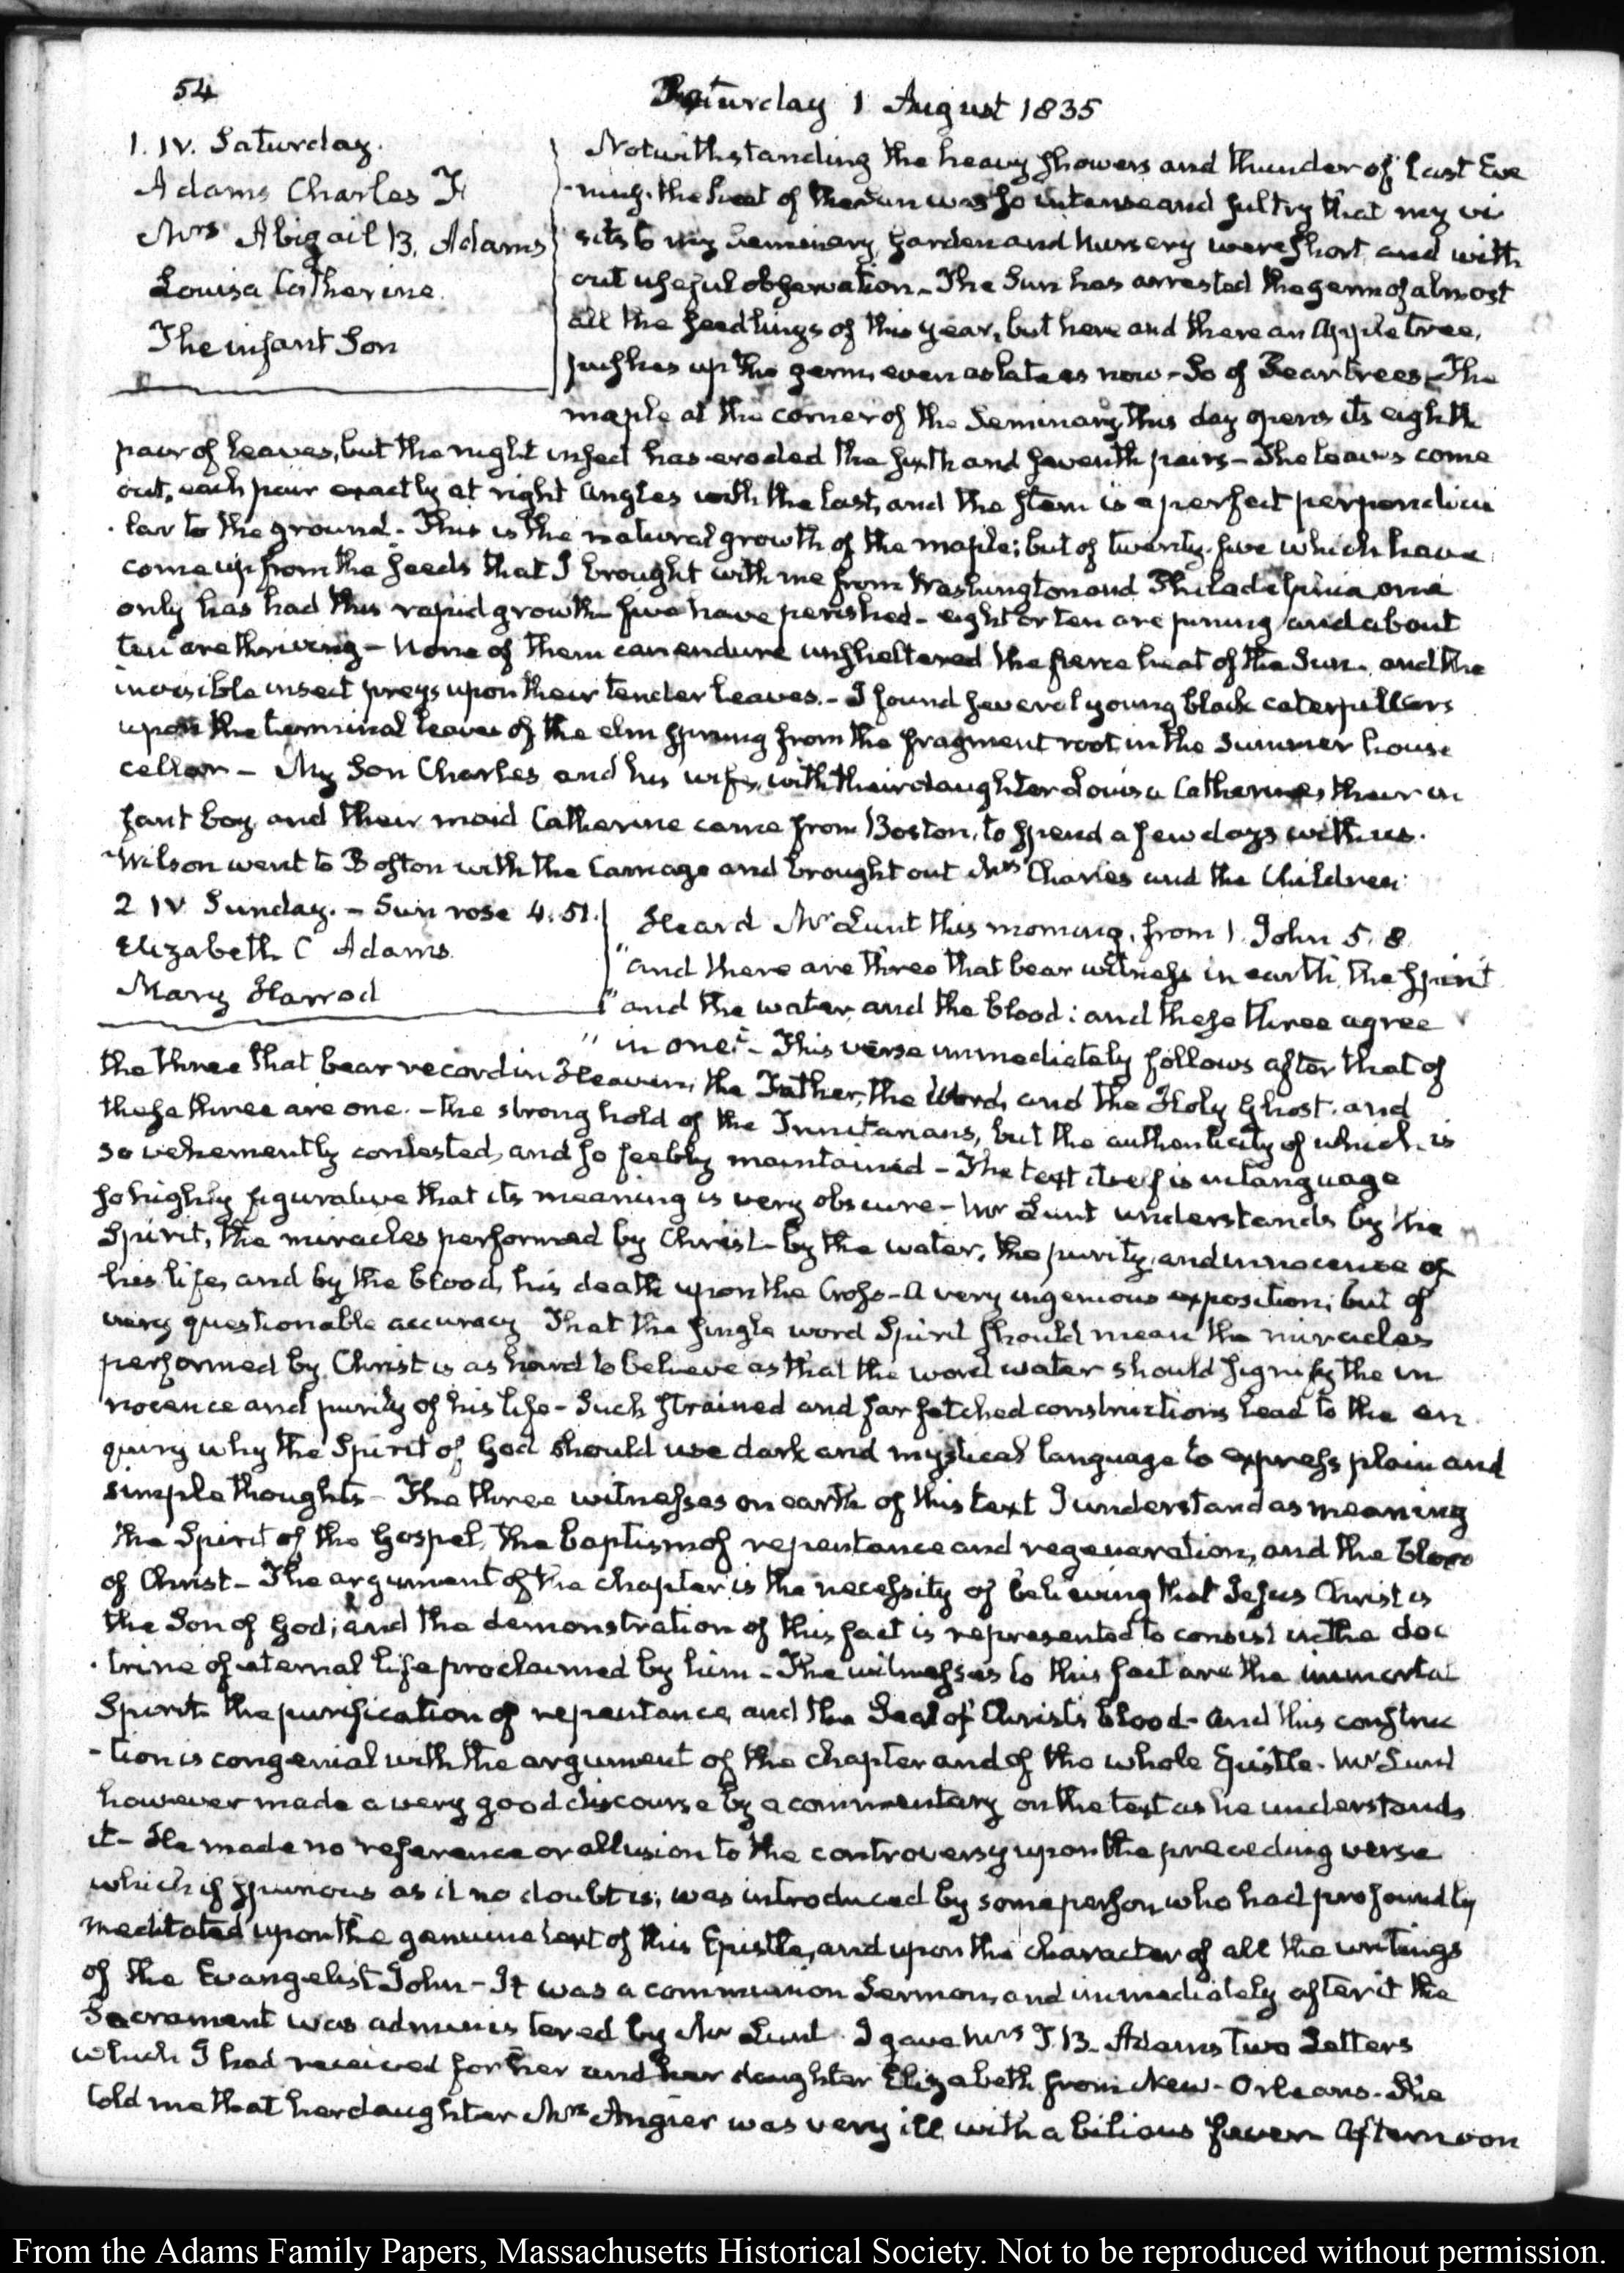 54
Saturday 1 August 1835
1. IV. Saturday.
Adams Charles F
Mrs Abigail B. Adams
Louisa Catherine
The infant Son
Notwithstanding the heavy showers and thunder of last Eve
-ning. the heat of the Sun was so intense and sultry that my vi
sits to my Seminary, garden and Nursery were short and with
out useful observation_ The Sun has arrested the germ of almost
all the seedlings of this year, but here and there an Apple tree,
pushes up the germ, even as late as now - So of Pear trees. The
maple at the corner of the Seminary this day opens its eighth
pair of leaves, but the night insect has eroded the sixth and seventh pairs - The leaves come
out, each pair exactly at right angles with the last, and the stem is a perfect perpendicu
-lar to the ground - This is the natural growth of the maple; but of twenty-five which have
come up from the seeds that I brought with me from Washington and Philadelphia one
only has had this rapid growth five have perished - eight or ten are pining and about
ten are thriving - None of them can endure unsheltered the fierce heat of the Sun, and the
invisible insect preys upon their tender leaves. - I found several young black caterpillars
upon the terminal leaves of the elm sprung from the fragment root in the summer house
cellar - My Son Charles and his wife, with their daughter Louisa Catherine, their in
fant boy, and their maid Catherine came from Boston, to spend a few days with us.
Wilson went to Boston with the Carriage and brought out Mrs Charles and the Children.
2 IV Sunday. - Sun rose 4.51.
Elizabeth C Adams
Mary Harrod
Heard Mr Lunt this morning, from 1. John 5. 8.
"and there are three that bear witness in earth, the spirit
"and the water, and the blood: and these three agree
" in one". - This verse immediately follows after that of
the three that bear record in Heaven, the Father, the Word, and the Holy Ghost. and
these three are one. - the strong hold of the Trinitarians, but the authenticity of which is
so vehemently contested, and so feebly maintained - The text itself is in language
so highly figurative that its meaning is very obscure - Mr Lunt understands by the
Spirit, the miracles performed by Christ - by the water, the purity and innocence of
his life, and by the blood, his death upon the Cross - A very ingenious exposition; but of
very questionable accuracy That the single word Spirit should mean the miracles
performed by Christ is as hard to believe as that the word water should signify the in
nocence and purity of his life - Such strained and far fetched constructions lead to the en
quiry why the Spirit of God should use dark and mystical language to express plain and
simple thoughts - The three witnesses on earth of this text I understand as meaning
the Spirit of the Gospel, the baptism of repentance and regeneration, and the blood
of Christ - The argument of the chapter is the necessity of believing that Jesus Christ is
the Son of God; and the demonstration of this fact is represented to consist in the doc
-trine of eternal life proclaimed by him - The witnesses to this fact are the immortal
Spirit the purification of repentance, and the Seal of Christ's blood - And this construc
-tion is congenial with the argument of the chapter and of the whole Epistle. Mr Lunt
however made a very good discourse by a commentary on the text as he understands
it - He made no reference or allusion to the controversy upon the preceding verse
which if spurious as it no doubt is, was introduced by some person, who had profoundly
meditated upon the genuine text of this Epistle, and upon the character of all the writings
of the Evangelist John - It was a communion Sermon, and immediately after it the
Sacrament was administered by Mr Lunt. I gave Mrs T. B. Adams two Letters
which I had received for her and her daughter Elizabeth from New-Orleans. She
told me that her daughter Mrs Angier was very ill with a bilious fever Afternoon
From the Adams Family Papers, Massachusetts Historical Society. Not to be reproduced without permission.